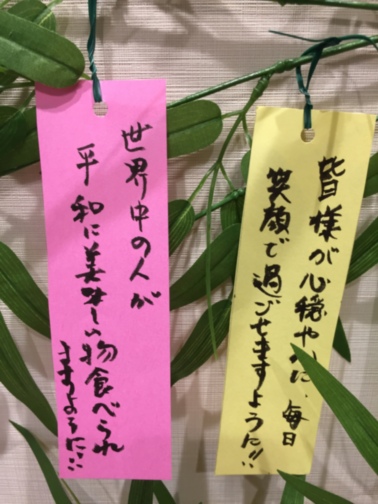 世界中の人が
平和に美味しい物食べられ
ますように!!
皆様が心穏やかに、毎日
笑顔で過ごせますように!!